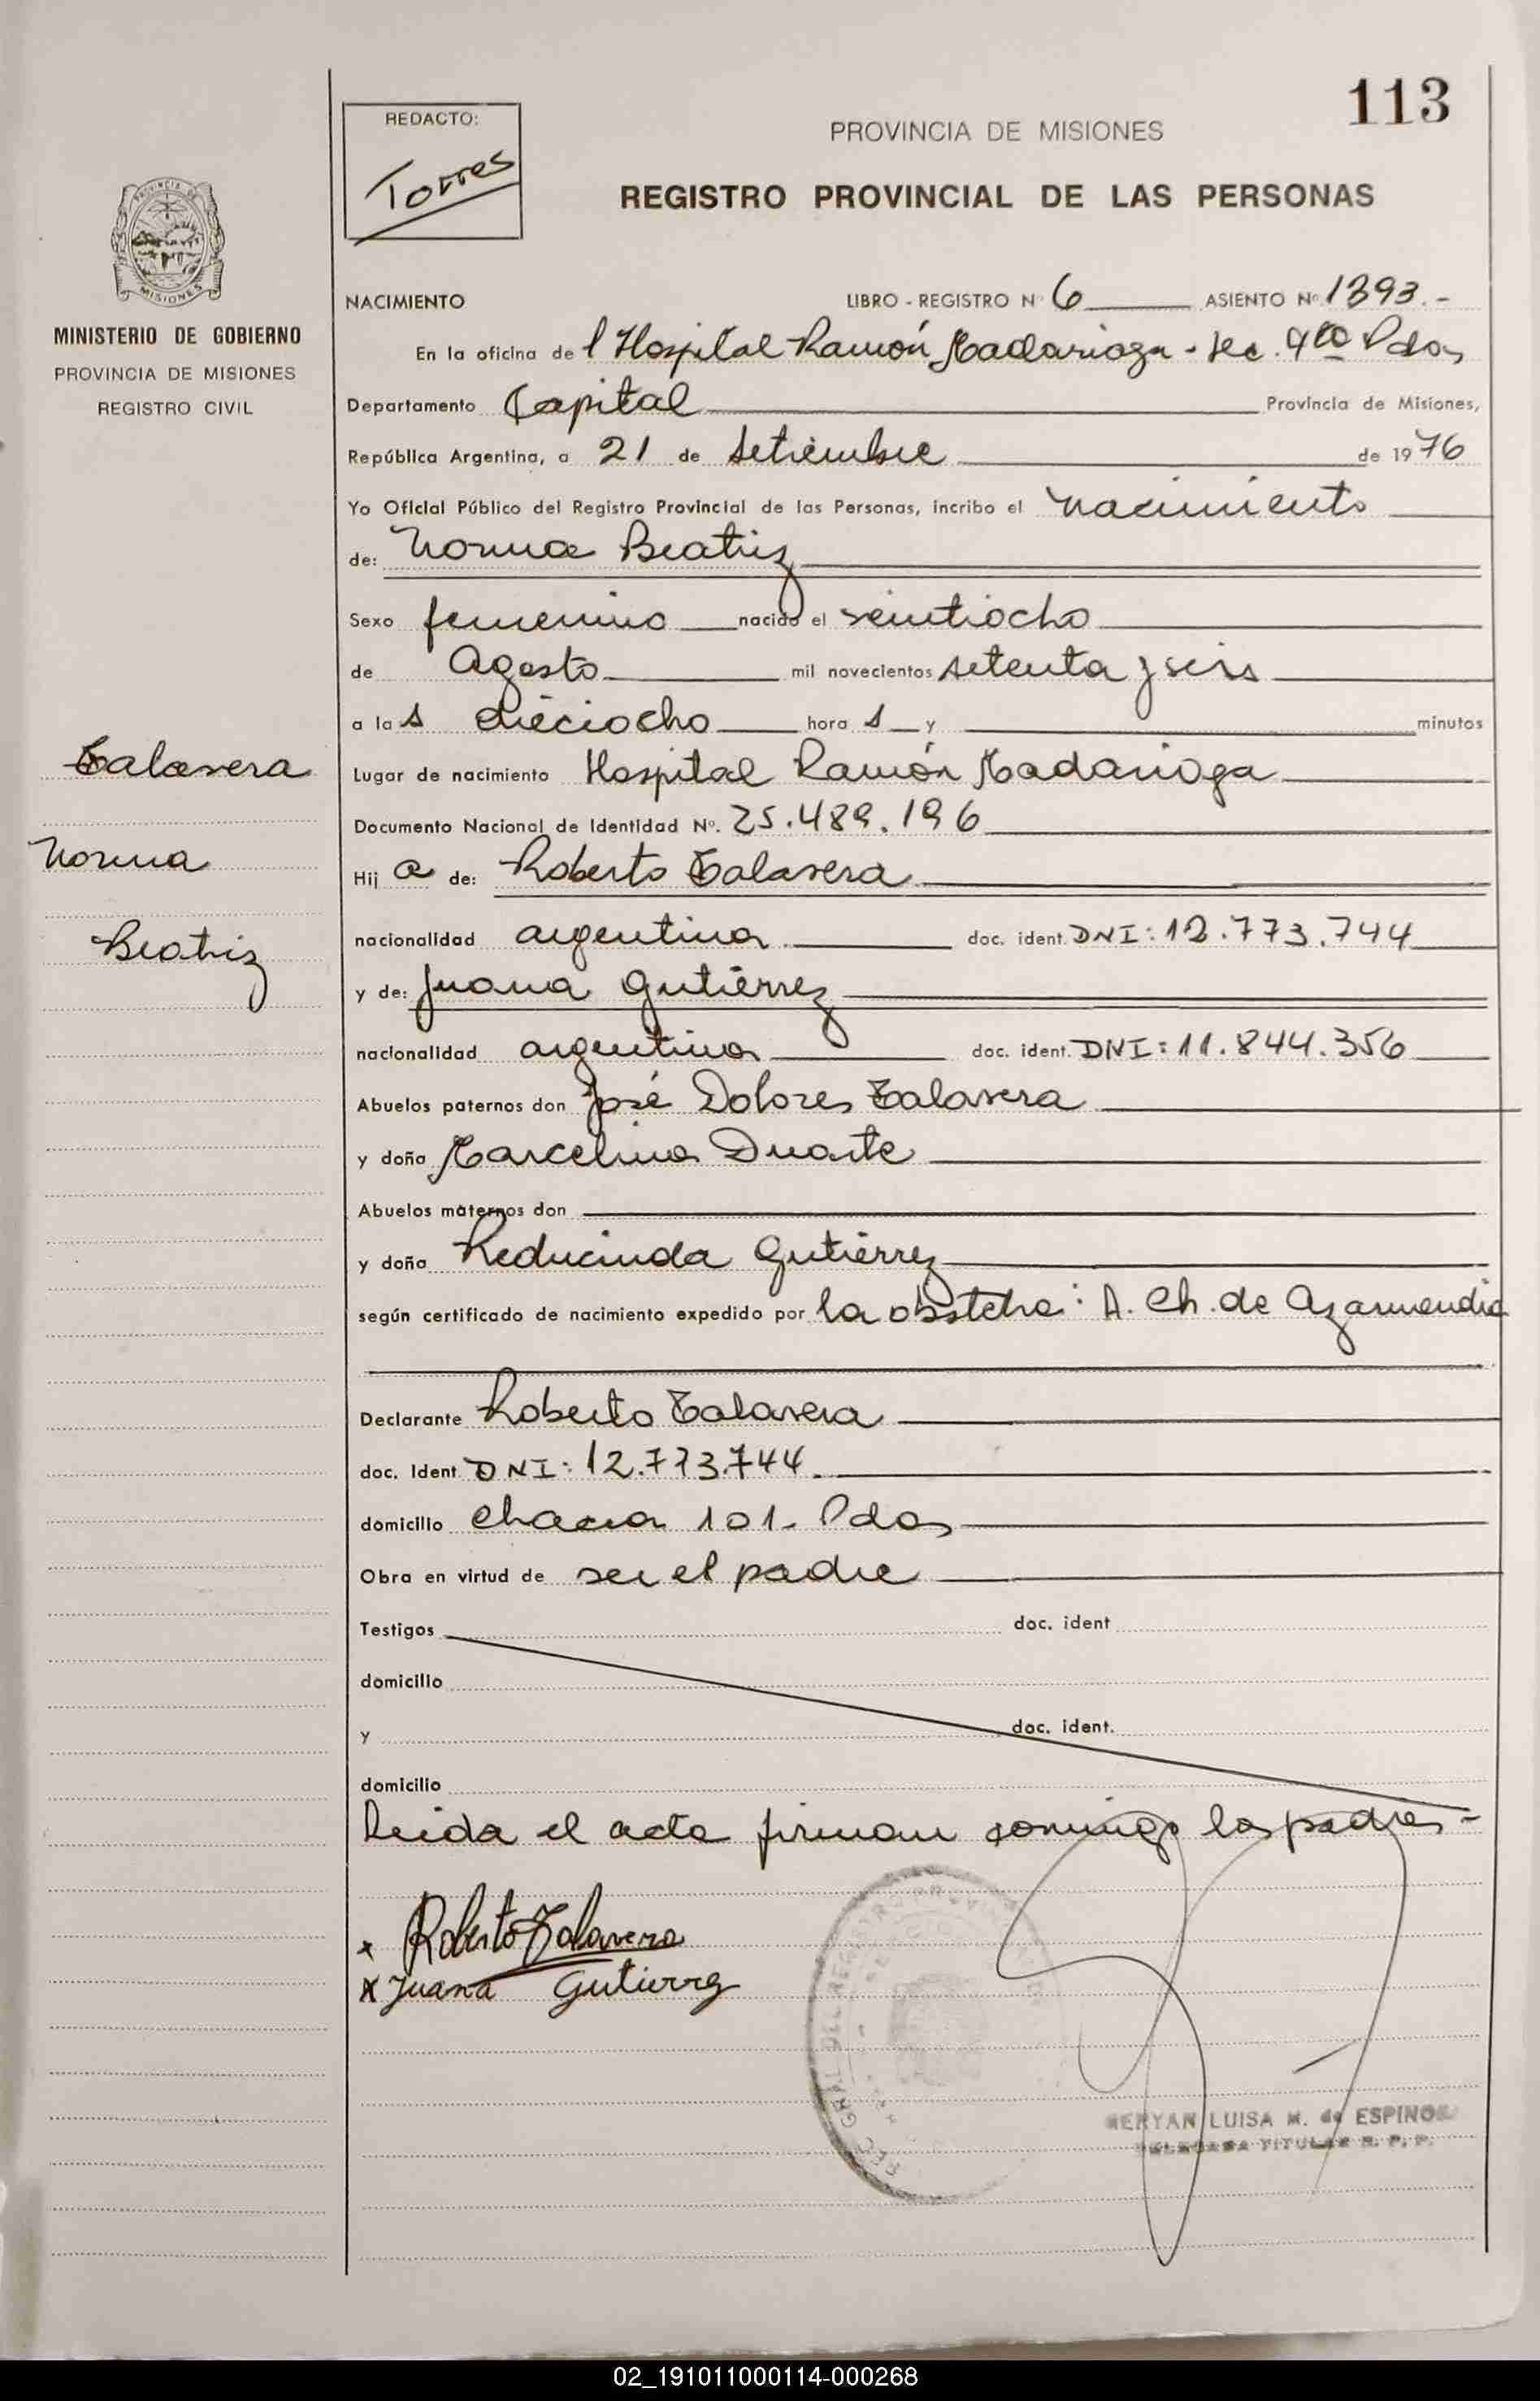 113
REDACTO:
Torres
PROVINCIA DE MISIONES
REGISTRO PROVINCIAL DE LAS PERSONAS
PROVINCIA DE
MISIONES
MINISTERIO DE GOBIERNO
PROVINCIA DE MISIONES
REGISTRO CIVIL
NACIMIENTO LIBRO - REGISTRO Nº 6 ASIENTO Nº 1393.-
En la oficina de l Hospital Ramón Madariaga - Sec. 4ta Pdas
Departamento Capital Provincia de Misiones,
República Argentina, a 21 de Setiembre de 1976
Yo Oficial Público del Registro Provincial de las Personas, incribo el nacimiento
de: Norma Beatriz
Sexo femenino nacido el veintiocho
de Agosto mil novecientos setenta y seis
a la s dieciocho hora s y minutos
Talavera
Norma
Beatriz
Lugar de nacimiento Hospital Ramón Madariaga
Documento Nacional de Identidad Nº. 25.489.196
Hij a de: Roberto Talavera
nacionalidad argentina doc. ident. DNI: 12.773.744
y de: Juana Gutiérrez
nacionalidad argentina doc. ident. DNI: 11.844.356
Abuelos paternos don José Dolores Talavera
y doña Marcelina Duarte
Abuelos maternos don
y doña Reducinda Gutiérrez
según certificado de nacimiento expedido por la obstetra: A. Ch. de Azarmendia
Declarante Roberto Talavera
doc. Ident. DNI: 12.773.744
domicilio chacra 101- Pdas
Obra en virtud de ser el padre
Testigos doc. ident
domicilio
y doc. ident.
domicilio
Leida el acta firman conmigo los padres-
x Roberto Talavera
x Juana Gutierrez
LUISA M. de ESPINOSA
TITULAR R. P. P.
02_191011000114-000268